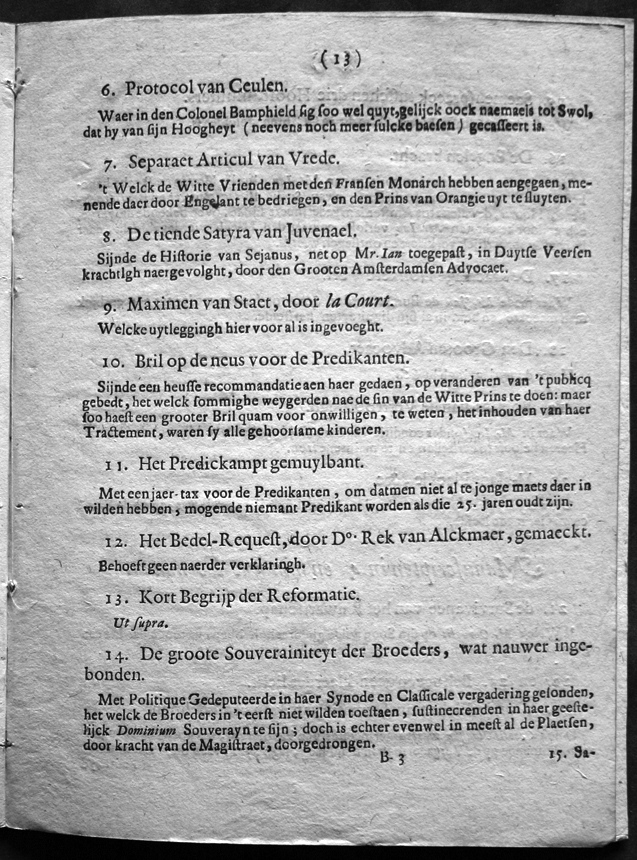 (13)
6. Protocol van Ceulen.
Waer in den Colonel Bamphield ſig ſoo wel quyt, gelijck oock naemaels tot Swol,
dat hy van ſijn Hoogheyt (neevens noch meer ſulcke baeſen) gecaſſeert is.
7. Separaet Articul van Vrede.
't Welck de Witte Vrienden met den Franſen Monarch hebben aengegaen, me-
nende daer door Engelant te bedriegen, en den Prins van Orangie uyt te ſluyten.
8. De tiende Satyra van Juvenael.
Sijnde de Hiſtorie van Sejanus, net op Mr. Ian toegepaſt, in Duytſe Veerſen
krachtlgh naergevolght, door den Grooten Amſterdamſen Advocaet.
9. Maximen van Staet, door la Court.
Welcke uytleggingh hier voor al is ingevoeght.
10. Bril op de neus voor de Predikanten.
Sijnde een heuſſe recommandatie aen haer gedaen, op veranderen van 't publicq
gebedt, het welck ſommighe weygerden nae de ſin van de Witte Prins te doen: maer
ſoo haeſt een grooter Bril quam voor onwilligen, te weten, het inhouden van haer
Tractement, waren ſy alle gehoorſame kinderen.
11. Het Predickampt gemuylbant.
Met een jaer-tax voor de Predikanten, om datmen niet al te jonge maets daer in
wilden hebben, mogende niemant Predikant worden als die 25. jaren oudt zijn.
12. Het Bedel-Requeſt, door Do. Rek van Alckmaer, gemaeckt.
Behoeft geen naerder verklaringh.
13. Kort Begrijp der Reformatie.
Ut ſupra.
14. De groote Souverainiteyt der Broeders, wat nauwer inge-
bonden.
Met Politique Gedeputeerde in haer Synode en Claſſicale vergadering geſonden,
het welck de Broeders in 't eerſt niet wilden toeſtaen, ſuſtinecrenden in haer geeſte-
lijck Dominium Souverayn te ſijn; doch is echter evenwel in meeſt al de Plaetſen,
door kracht van de Magiſtraet, doorgedrongen.
B 3
15. Sa-